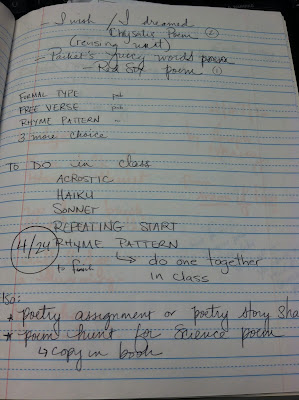 - I wish / I dreamed
Chrysalis Poem (2)
(revising next)
- Packet's Juicy words
- Red Sox poem (1)
FORMAL TYPE
FREE VERSE
RHYME PATTERN
3 more choice
TO DO in class
ACROSTIC
HAIKU
SONNET
REPEATING START
4/24 RHYME PATTERN
to ↳ do one together
in class
lso:
* poetry assignment or poetry story Sha
* poem hunt for Science poem
↳ copy in book